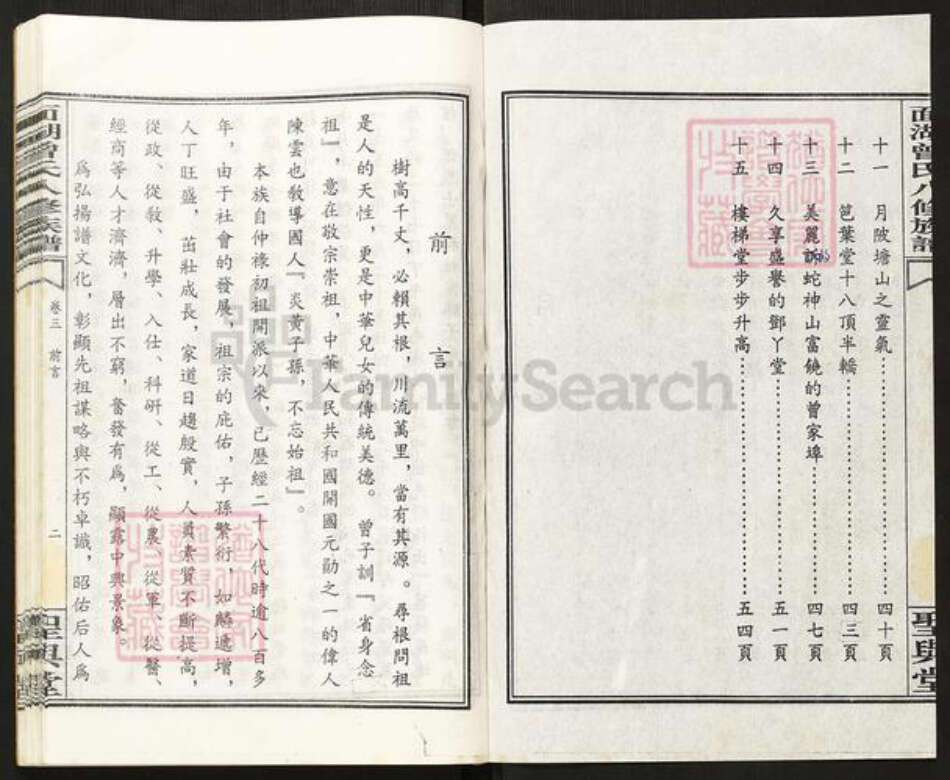 面湖曾氏八修族譜
十一 月陂塘山之靈氣 四十頁
十二 笆葉堂十八頂半轎 四三頁
十三 美麗 蛇神山富饒的曾家埠 四七頁
十四 久享盛譽的鄧丫堂 五一頁
十五 樓梯堂步步升高 五四頁
聖與堂
前言
樹高千丈，必賴其根，川流萬里，當有其源。尋根問祖
是人的天性，更是中華兒女的傳統美德。曾子訓『省身念
祖』，意在敬宗崇祖，中華人民共和國開國元勛之一的偉人
陳雲也教導國人『炎黃子孫，不忘始祖』。
本族自仲祿初祖開派以來，已歷經二十八代時逾八百多
年，由于社會的發展，祖宗的庇佑，子孫繁衍，如麟遞增，
人丁旺盛，茁壯成長，家道日趨殷實，人員素質不斷提高，
從政、從教、升學、入仕、科研、從工、從農、從軍、從醫、
經商等人才濟濟，層出不窮，奮發有爲，顯露中興景象。
爲弘揚譜文化，彰顯先祖謀略與不朽卓識，昭佑后人爲
面湖曾氏八修族譜
卷三 前言
二
聖與堂
FamilySearch